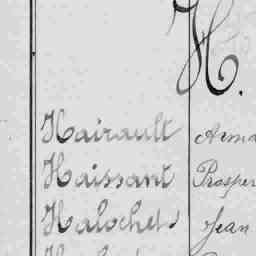 H.
Hairault
Haissant Prosper
Halochet Jean